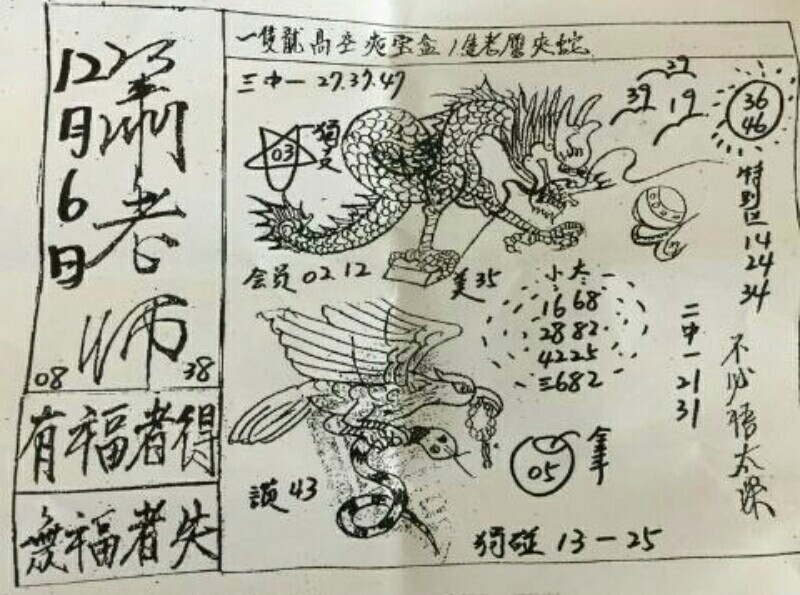 12月6日
蕭老師
08 38
有福者得
無福者失
一隻龍高至夾宝盒 1隻老鷹夾蛇
三中一 27.37.47
03 獨支
27
39 19
36
46
特別區
14
24
34
会员 02 12
美 35
小 大
16 68
28 82
42 25
三682
二中一
21
31
不必悟太深
05
讚 43
獨碰 13-25